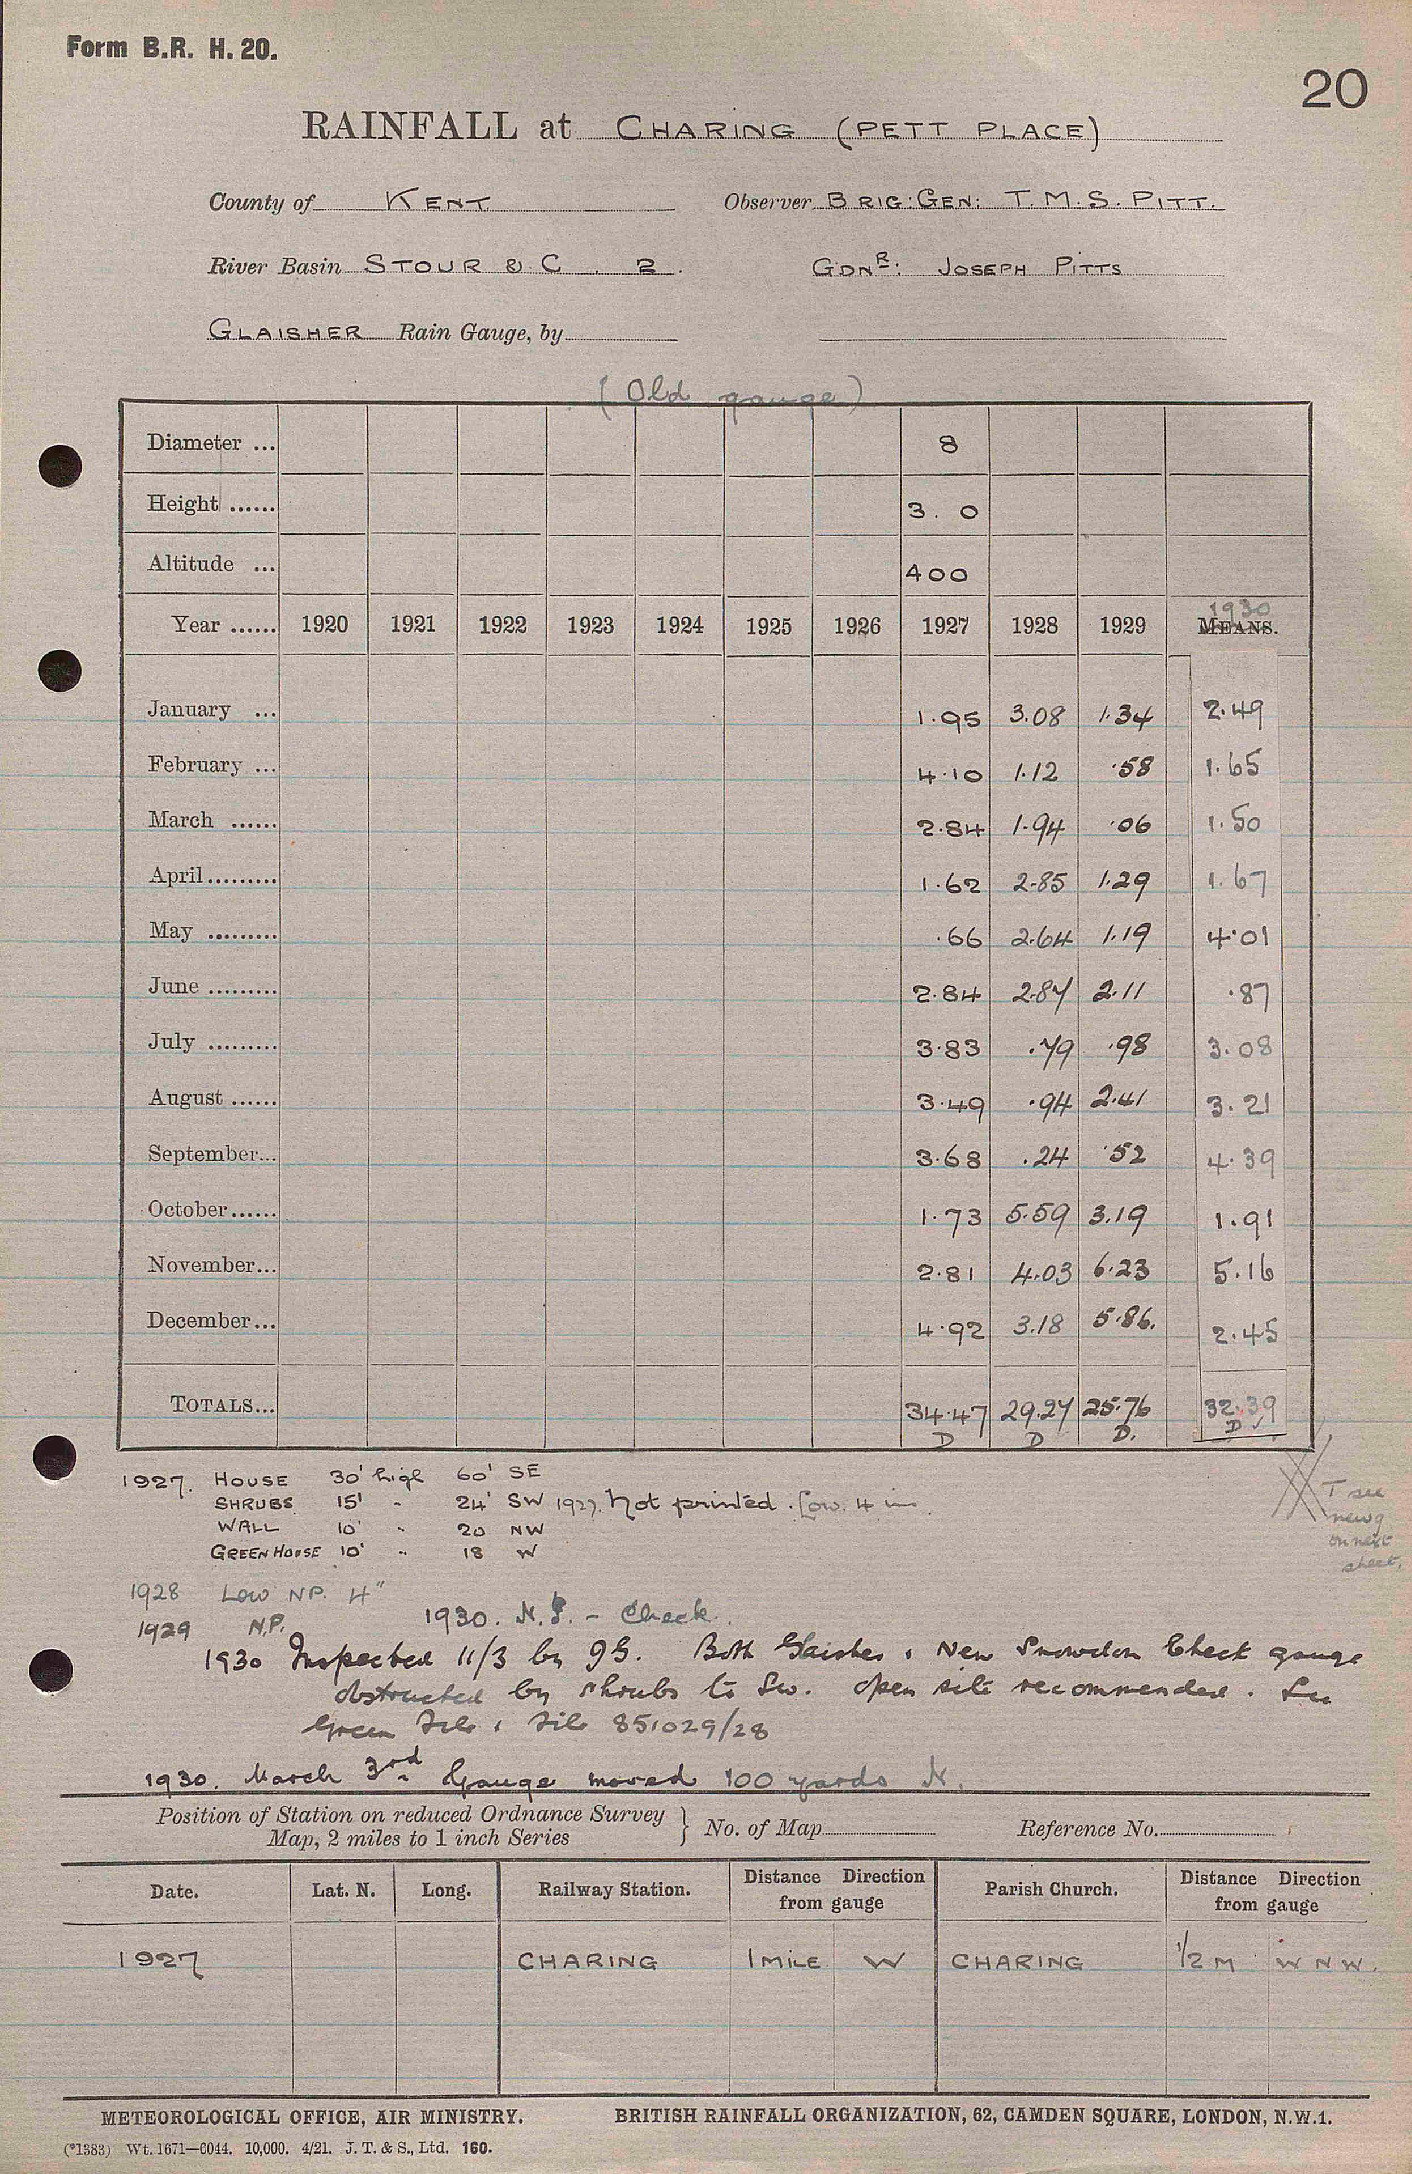 Form B.R. H. 20.
20
RAINFALL at CHARING (PETT PLACE)
County of KENT Observer BRIG: GEN: T. M. S. PITT.
River Basin STOUR & C. 2. GDNR: JOSEPH PITTS
GLAISHER Rain Gauge, by
(Old gauge)
Diameter ... 8
Height ...... 3. 0
Altitude ... 400
Year ...... 1920 1921 1922 1923 1924 1925 1926 1927 1928 1929 1930 MEANS.
January ... 1.95 3.08 1.34 2.49
February ... 4.10 1.12 .58 1.65
March ...... 2.84 1.94 .06 1.50
April......... 1.62 2.85 1.29 1.67
May ......... .66 2.64 1.19 4.01
June ......... 2.84 2.87 2.11 .87
July ......... 3.83 .79 .98 3.08
August ...... 3.49 .94 2.41 3.21
September... 3.68 .24 .52 4.39
October...... 1.73 5.59 3.19 1.91
November... 2.81 4.03 6.23 5.16
December... 4.92 3.18 5.86. 2.45
TOTALS... 34.47 29.27 25.76 32.39
D D D. D ✓
1927. HOUSE 30' high 60' SE
SHRUBS 15' " 24' SW 1927. Not printed. Low. 4 in
WALL 10' " 20 NW
GREEN HOUSE 10' " 18 W
T see
new g
on next
sheet.
1928 Low NP. 4"
1929 N.P. 1930. N.P. - Check.
1930 Inspected 11/3 by J.G. Both Glaisher & New Snowdon Check gauge
obstructed by shrubs to Sw. open site recommended. See
Green File & File 851029/28
1930. March 3rd Gauge moved 100 yards N.
Position of Station on reduced Ordnance Survey
Map, 2 miles to 1 inch Series } No. of Map Reference No.
Date. Lat. N. Long. Railway Station. Distance Direction from gauge Parish Church. Distance Direction from gauge
1927 CHARING 1 MILE W CHARING 1/2 M W N W.
METEOROLOGICAL OFFICE, AIR MINISTRY. BRITISH RAINFALL ORGANIZATION, 62, CAMDEN SQUARE, LONDON, N.W.1.
(*1383) Wt. 1671—C044. 10,000. 4/21. J. T. & S., Ltd. 160.